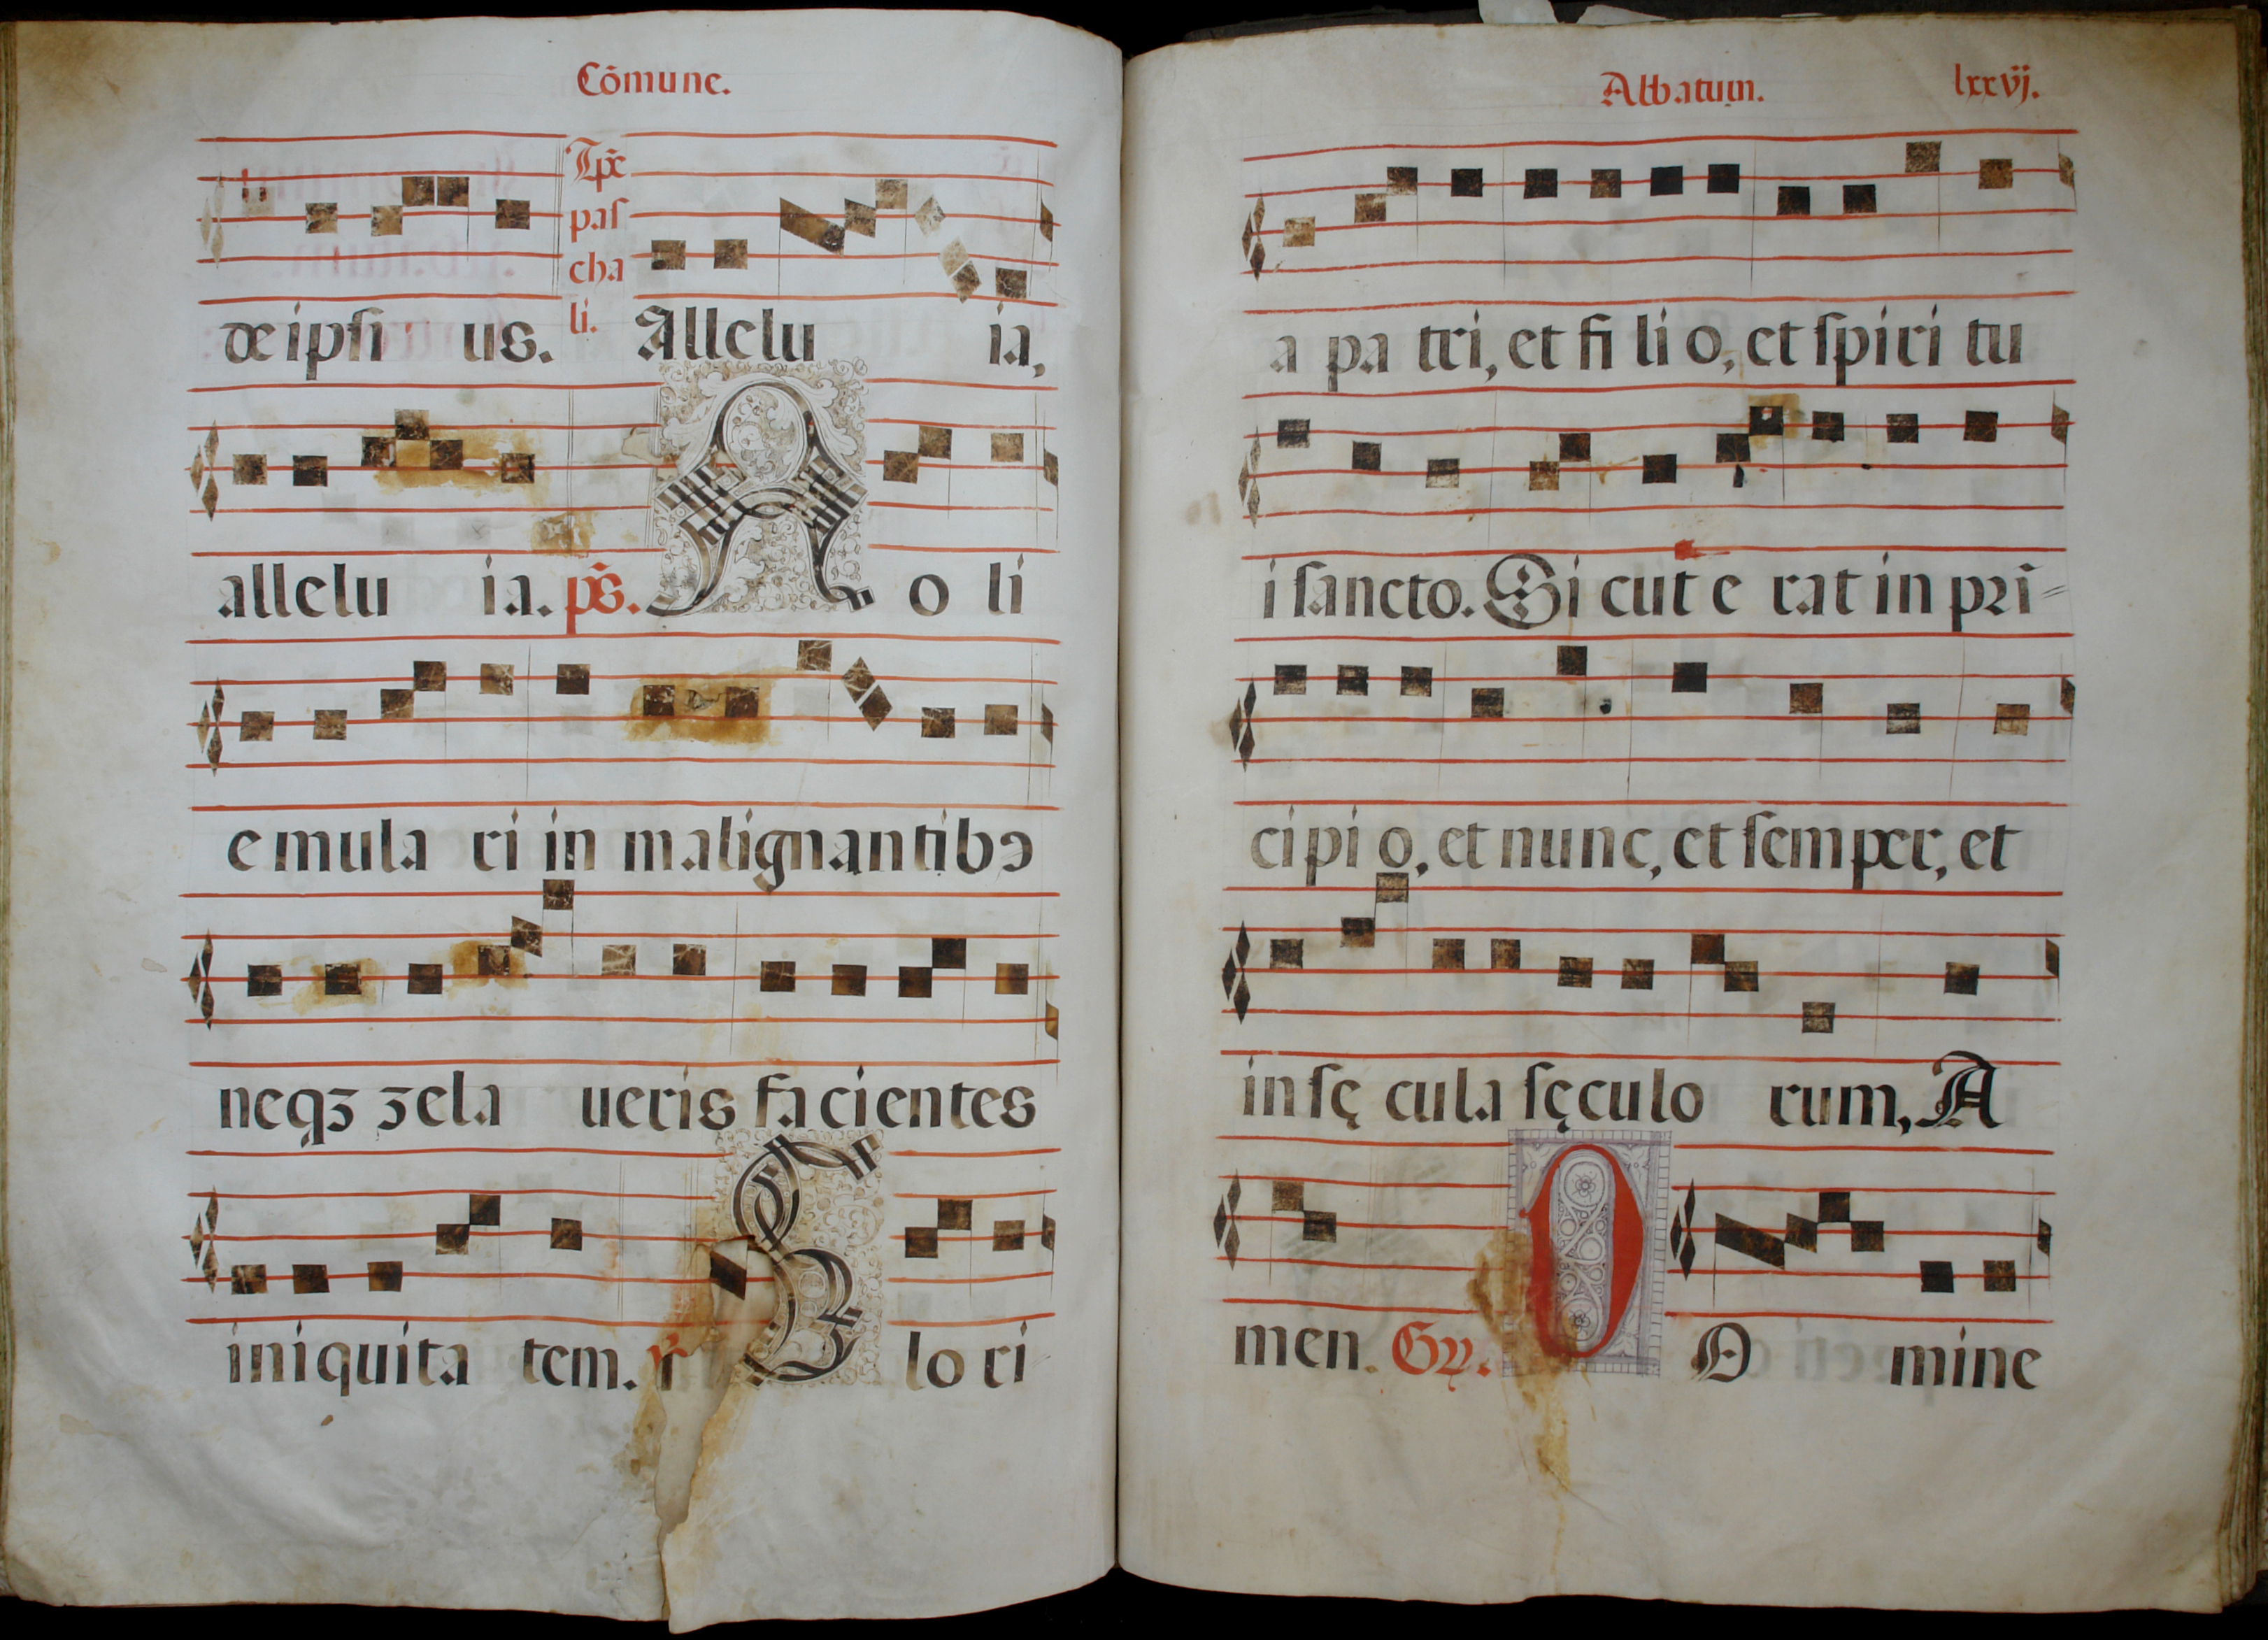 Cōmune.
Tp̄e
pas
cha
li.
de ipsi us. Allelu ia,
allelu ia. ps̄. N o li
e mula ri in malignantibꝯ
neqꝫ zela ueris facientes
iniquita tem. G lo ri
Abbatum. lxxvj.
a pa tri, et fi li o, et spiri tu
i sancto. Si cut e rat in pri=
cipi o, et nunc, et semper, et
in sę cula sęculo rum, A
men. Gr̄. D O mine